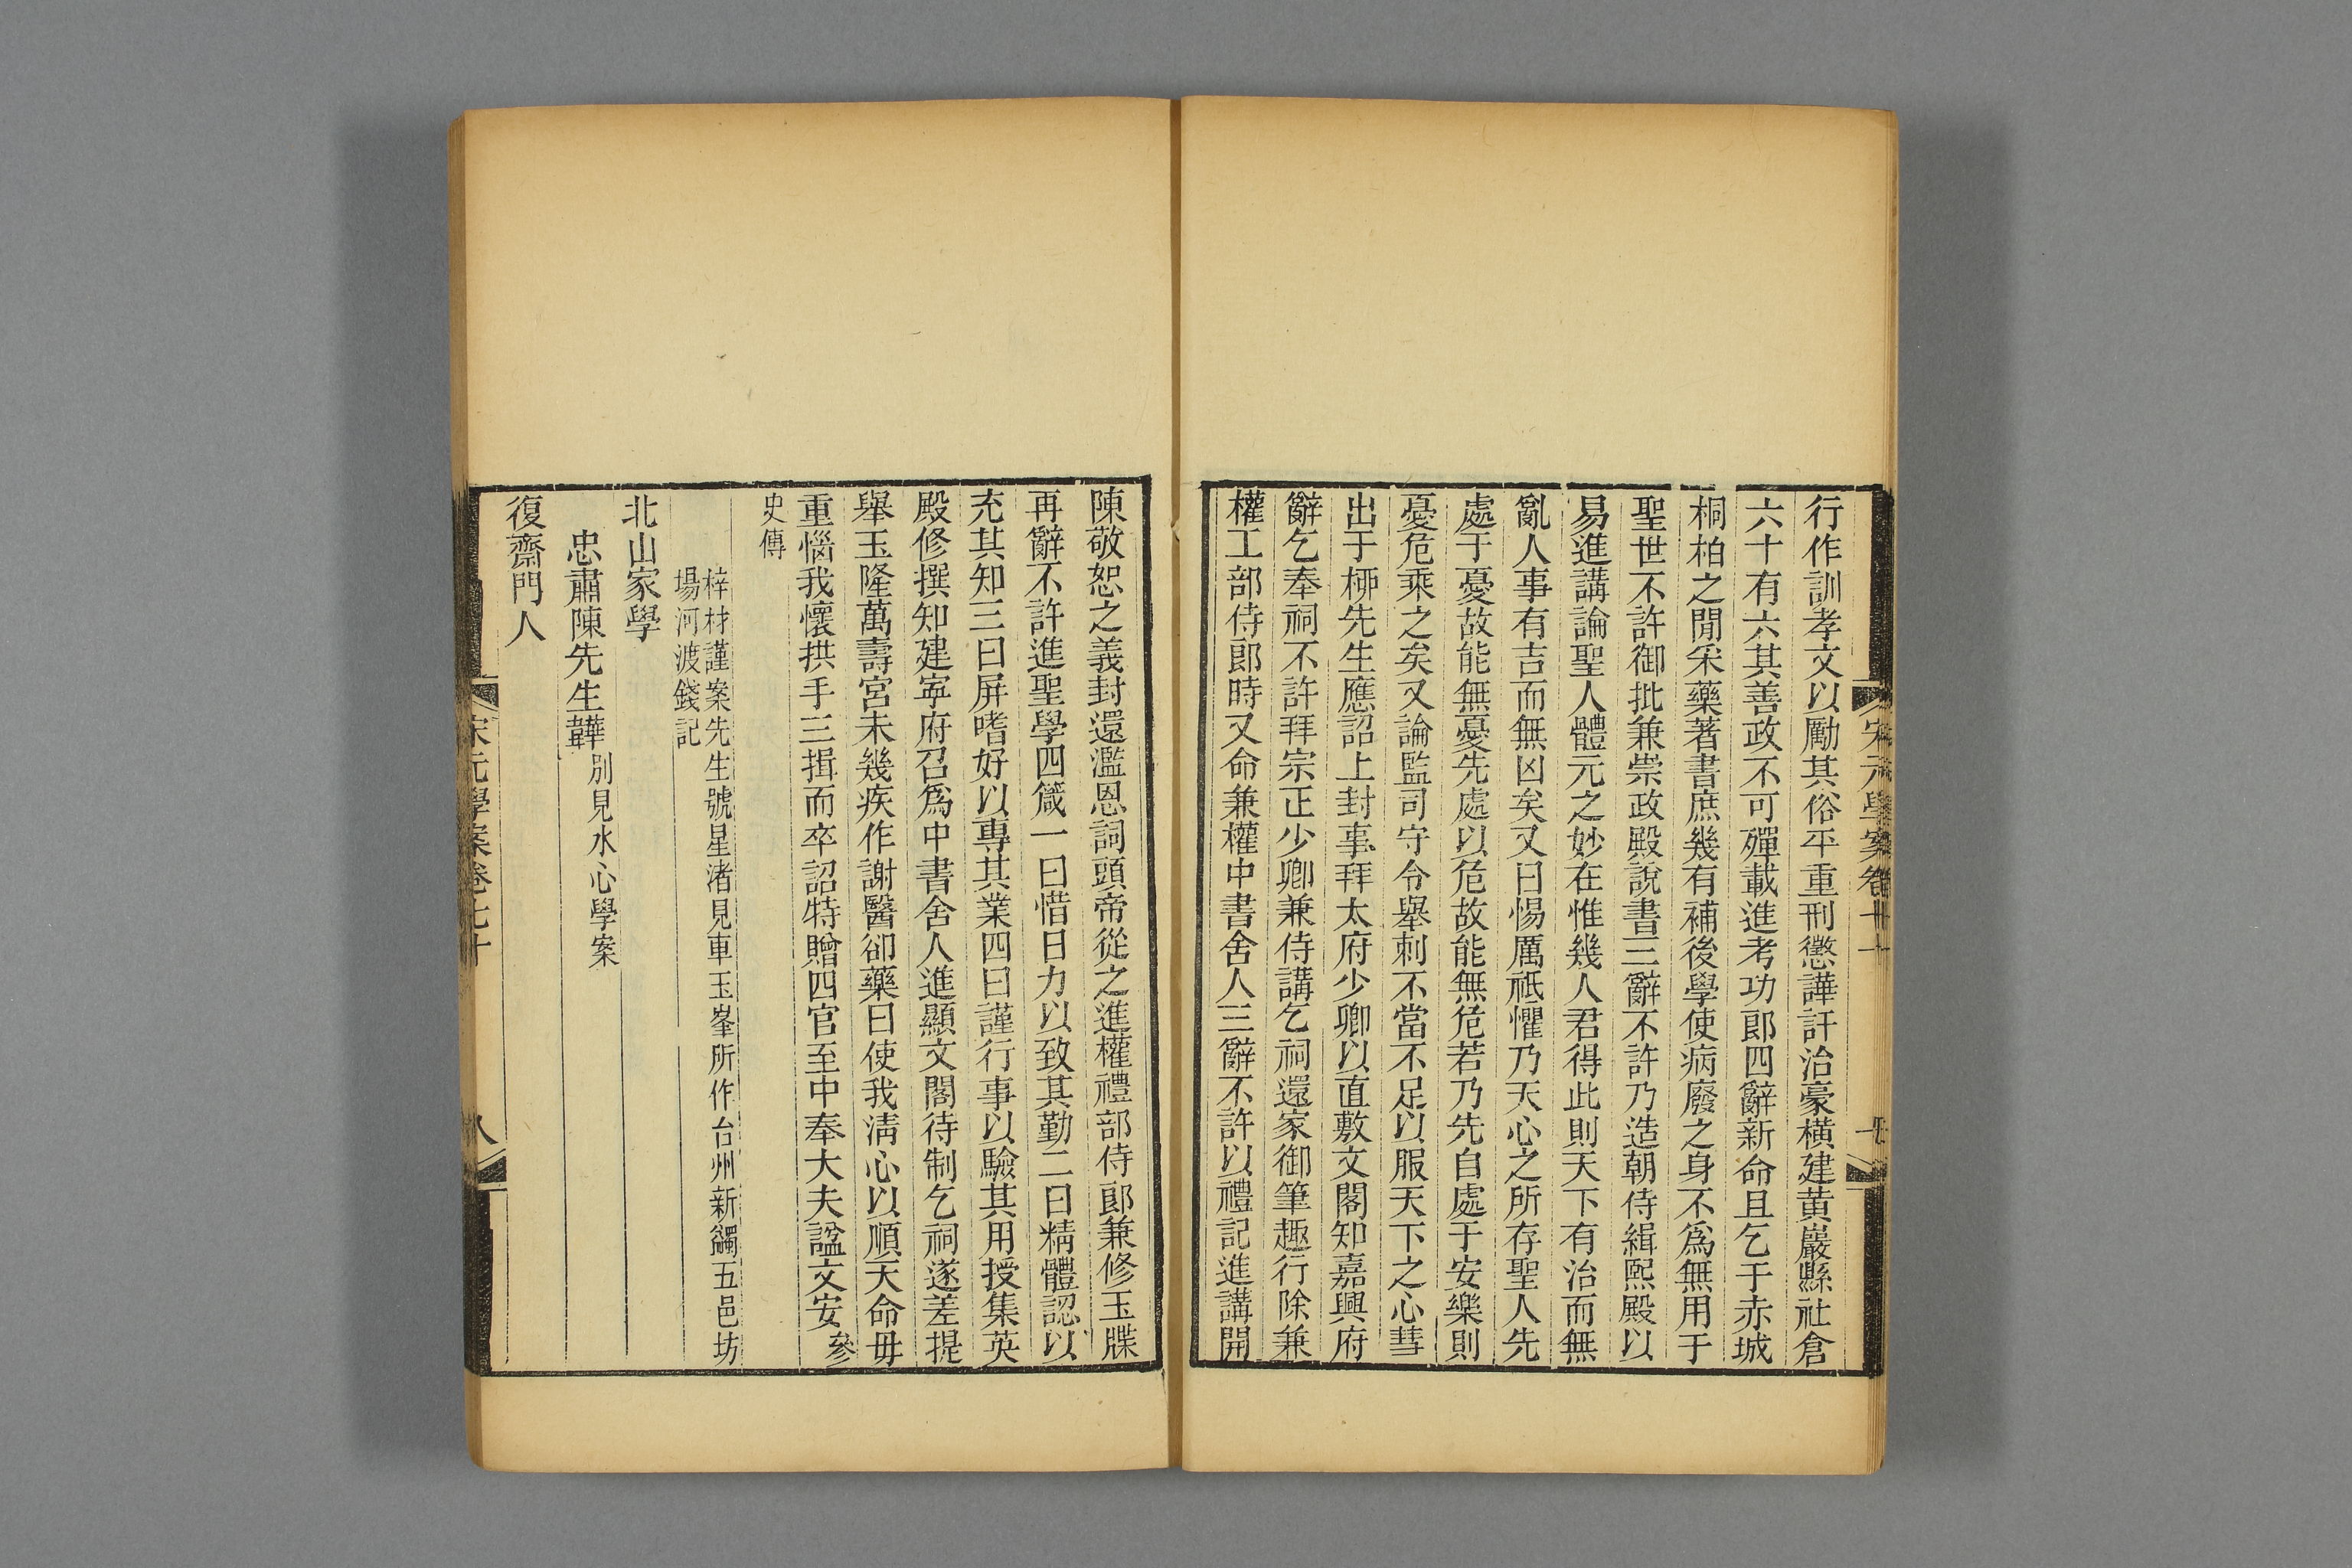 行作訓孝文以勵其俗平重刑懲譁訐治豪橫建黄巖縣社倉
六十有六其善政不可殫載進考功郎四辭新命且乞于赤城
桐柏之閒采藥著書庶幾有補後學使病廢之身不爲無用于
聖世不許御批兼崇政殿說書三辭不許乃造朝侍緝熙殿以
易進講論聖人體元之妙在惟幾人君得此則天下有治而無
亂人事有吉而無凶矣又曰惕厲祇懼乃天心之所存聖人先
處于憂故能無憂先處以危故能無危若乃先自處于安樂則
憂危乘之矣又論監司守令舉刺不當不足以服天下之心彗
出于桺先生應詔上封事拜太府少卿以直敷文閣知嘉興府
辭乞奉祠不許拜宗正少卿兼侍講乞祠還家御筆趣行除兼
權工部侍郎時又命兼權中書舍人三辭不許以禮記進講開
陳敬恕之義封還濫恩詞頭帝從之進權禮部侍郎兼修玉牒
再辭不許進聖學四箴一曰惜日力以致其勤二曰精體認以
充其知三曰屏嗜好以專其業四曰謹行事以驗其用授集英
殿修撰知建寧府召爲中書舍人進顯文閣待制乞祠遂差提
舉玉隆萬壽宮未幾疾作謝醫卻藥曰使我淸心以順天命毋
重惱我懷拱手三揖而卒詔特贈四官至中奉大夫諡文安參
史傳
梓材謹案先生號星渚見車玉峯所作台州新蠲五邑坊
場河渡錢記
北山家學
忠肅陳先生韡別見水心學案
復齋門人
宋元學案卷七十
八